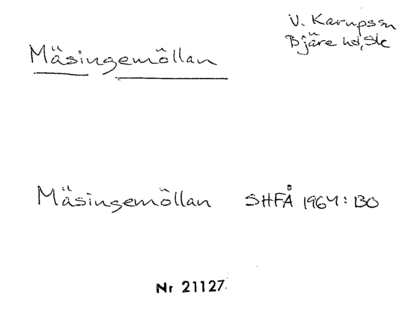 Mäsingemöllan
V. Karupssn
Bjäre hd, Sk
Mäsingemöllan SHFÅ 1964: 130
Nr 21127